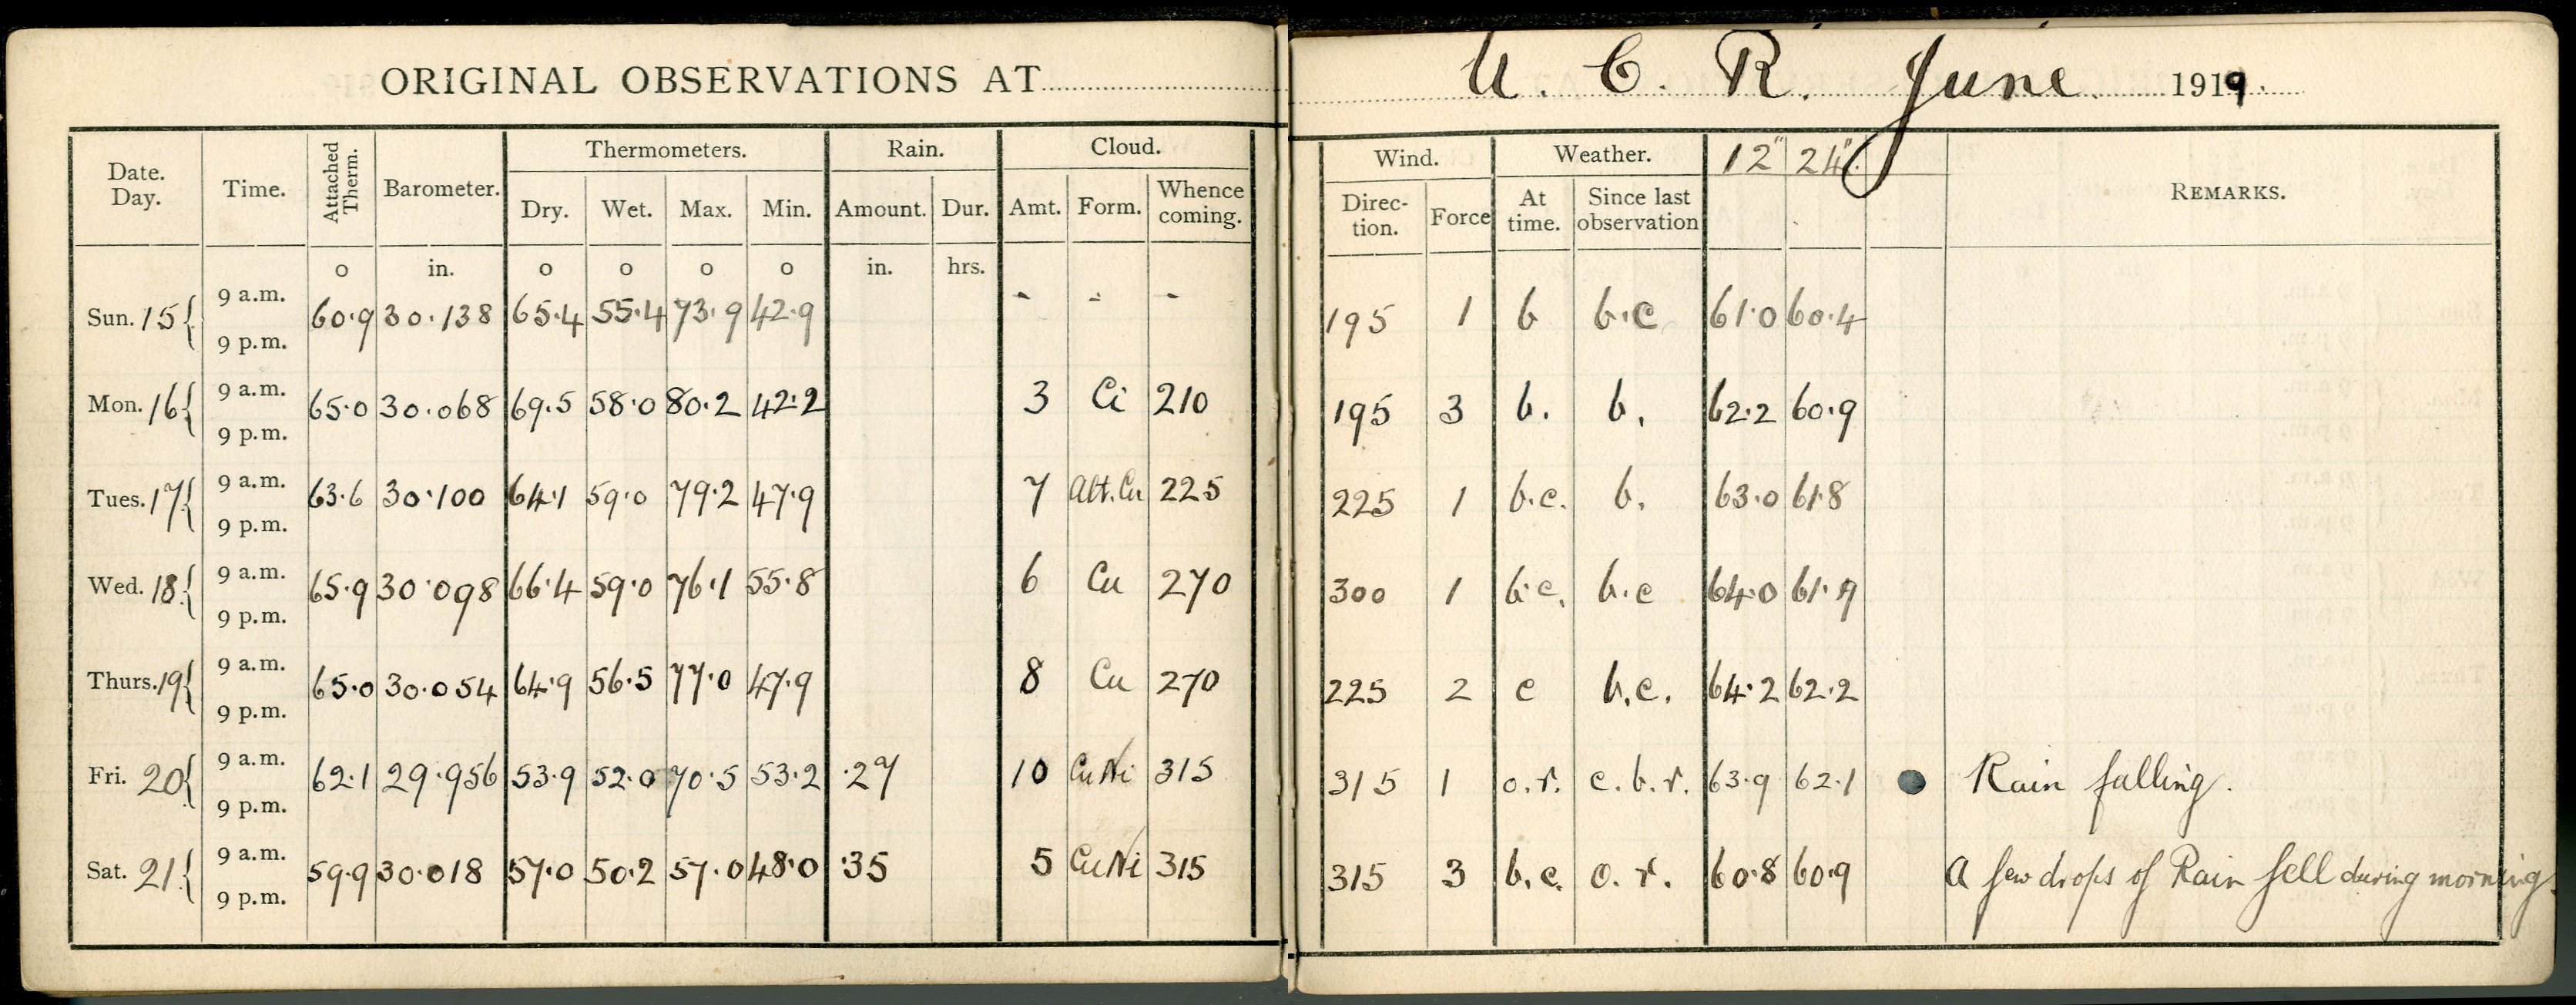 ORIGINAL OBSERVATIONS AT U. C. R. June 1919.
Date. Day. Time. Attached Therm. Barometer. Thermometers. Dry. Wet. Max. Min. Rain. Amount. Dur. Cloud. Amt. Form. Whence coming. Wind. Direc- tion. Force Weather. At time. Since last observation 12" 24". REMARKS.
o in. o o o o in. hrs.
Sun. 15 { 9 a.m. 60.9 30.138 65.4 55.4 73.9 42.9 - - - 195 1 b b.c 61.0 60.4
9 p.m.
Mon. 16 { 9 a.m. 65.0 30.068 69.5 58.0 80.2 42.2 3 Ci 210 195 3 b. b. 62.2 60.9
9 p.m.
Tues. 17 { 9 a.m. 63.6 30.100 64.1 59.0 79.2 47.9 7 Alt.Cu 225 225 1 b.c. b. 63.0 61.8
9 p.m.
Wed. 18 { 9 a.m. 65.9 30.098 66.4 59.0 76.1 55.8 6 Cu 270 300 1 b.c. b.c 64.0 61.9
9 p.m.
Thurs. 19 { 9 a.m. 65.0 30.054 64.9 56.5 77.0 47.9 8 Cu 270 225 2 c b.c. 64.2 62.2
9 p.m.
Fri. 20 { 9 a.m. 62.1 29.956 53.9 52.0 70.5 53.2 .27 10 CuNi 315 315 1 o.r. c.b.r. 63.9 62.1 ● Rain falling.
9 p.m.
Sat. 21 { 9 a.m. 59.9 30.018 57.0 50.2 57.0 48.0 .35 5 CuNi 315 315 3 b.c. o.r. 60.8 60.9 A few drops of Rain fell during morning.
9 p.m.